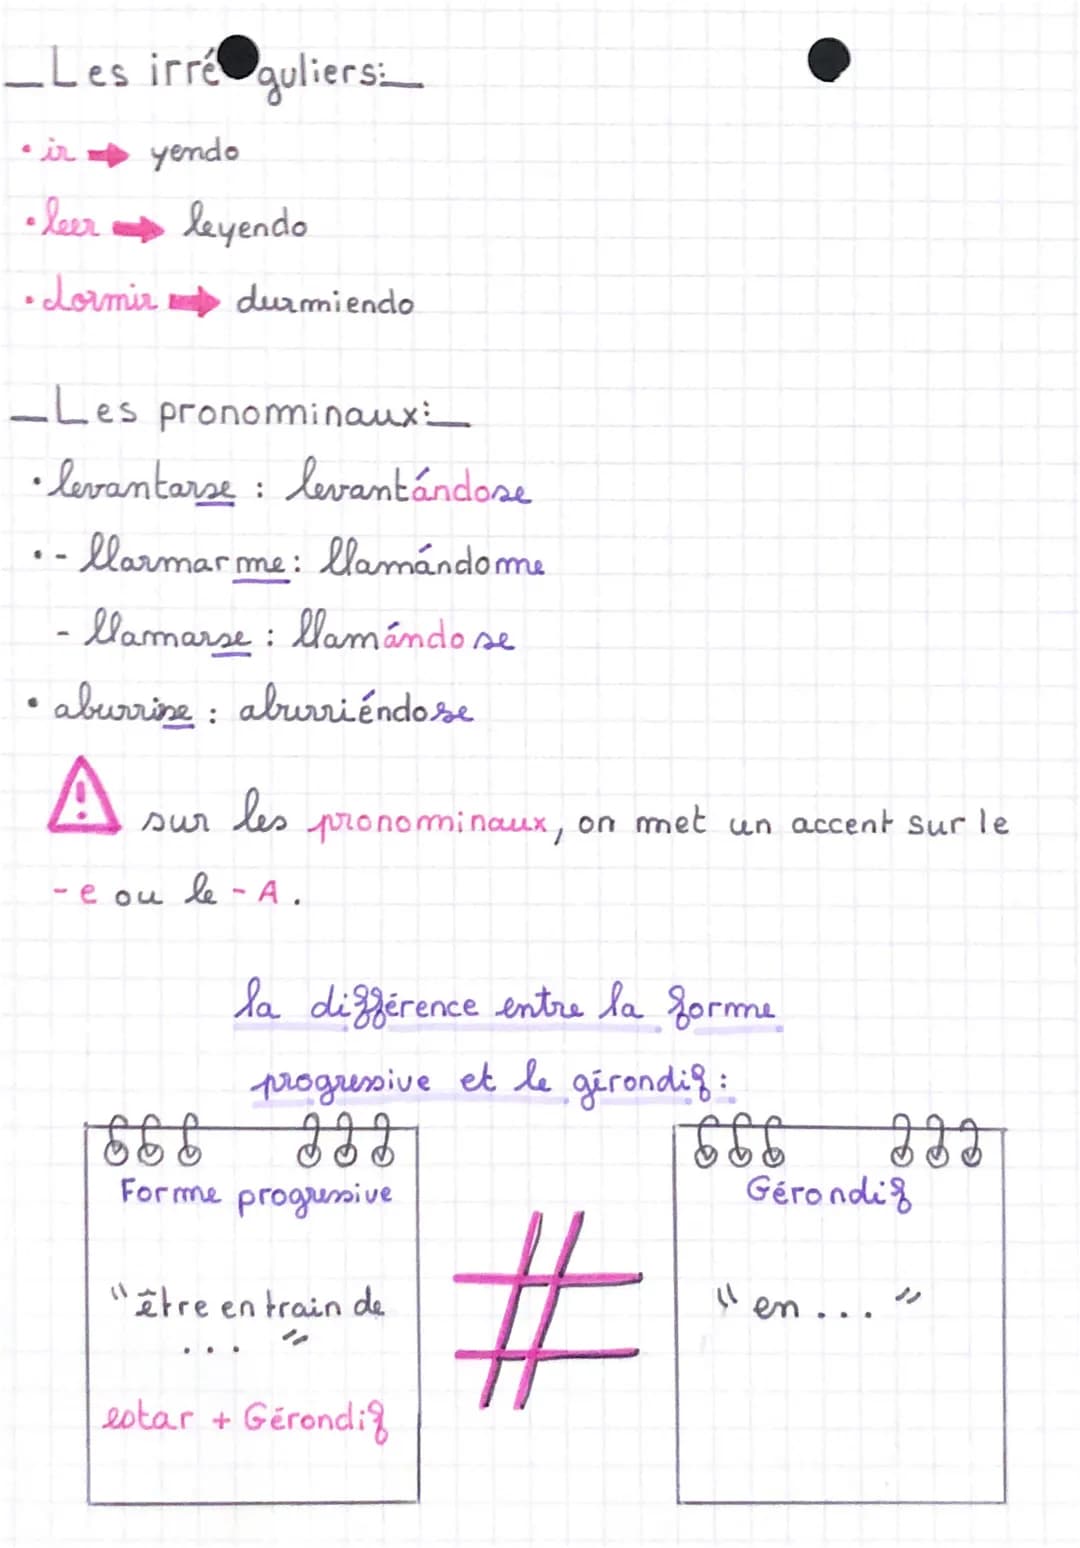 Les irréguliers:
• ir → yendo
• leer → leyendo
• dormir → durmiendo
Les pronominaux:
• levantarse : levantándose
• - llarmarme : llamándome
- llamarse : llamándose
• aburrirse : aburriéndose
sur les pronominaux, on met un accent sur le
-e ou le -A.
la différence entre la forme
progressive et le gérondif :
Forme progressive
"être en train de
... "
estar + Gérondif
#
Gérondif
"en ... "